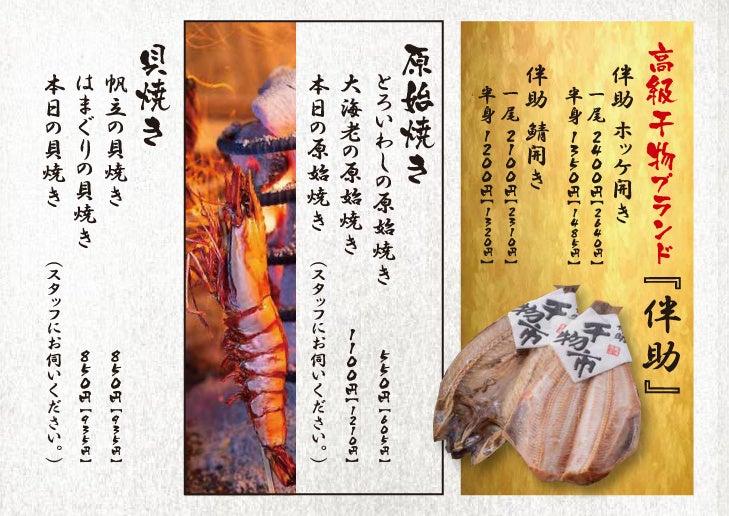 高級干物ブランド『伴助』
伴助 ホッケ開き
一尾 2400円【2640円】
半身 1350円【1485円】
伴助 鯖開き
一尾 2100円【2310円】
半身 1200円【1320円】
干物市
干物市
原始焼き
とろいわしの原始焼き 550円【605円】
大海老の原始焼き 1100円【1210円】
本日の原始焼き (スタッフにお伺いください。)
貝焼き
帆立の貝焼き 850円【935円】
はまぐりの貝焼き 850円【935円】
本日の貝焼き (スタッフにお伺いください。)